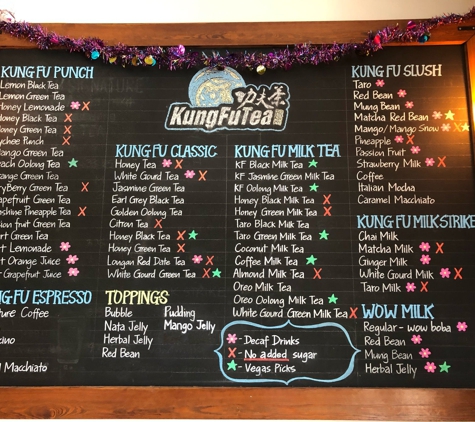 KUNG FU PUNCH
Lemon Black Tea
Lemon Green Tea
Honey Lemonade
Honey Black Tea
Honey Green Tea
Lychee Punch
Mango Green Tea
Peach Oolong Tea
Orange Green Tea
Green Tea
Grapefruit Green Tea
Sunshine Pineapple Tea
Passion fruit Green Tea
Green Tea
Lemonade
Orange Juice
Grapefruit Juice
KUNG FU ESPRESSO
Signature Coffee
Macchiato
KungFuTea
功夫茶
KUNG FU CLASSIC
Honey Tea
White Gourd Tea
Jasmine Green Tea
Earl Grey Black Tea
Golden Oolong Tea
Citron Tea
Honey Black Tea
Honey Green Tea
Longan Red Date Tea
White Gourd Green Tea
TOPPINGS
Bubble
Nata Jelly
Herbal Jelly
Red Bean
Pudding
Mango Jelly
KUNG FU MILK TEA
KF Black Milk Tea
KF Jasmine Green Milk Tea
KF Oolong Milk Tea
Honey Black Milk Tea
Honey Green Milk Tea
Taro Black Milk Tea
Taro Green Milk Tea
Coconut Milk Tea
Coffee Milk Tea
Almond Milk Tea
Oreo Milk Tea
Oreo Oolong Milk Tea
White Gourd Green Milk Tea
- Decaf Drinks
X - No added sugar
- Vegas Picks
KUNG FU SLUSH
Taro
Red Bean
Mung Bean
Matcha Red Bean
Mango/Mango Snow
Pineapple
Passion Fruit
Strawberry Milk
Coffee
Italian Mocha
Caramel Macchiato
KUNG FU MILKSTRIKE
Chai Milk
Matcha Milk
Ginger Milk
White Gourd Milk
Taro Milk
WOW MILK
Regular - wow boba
Red Bean
Mung Bean
Herbal Jelly